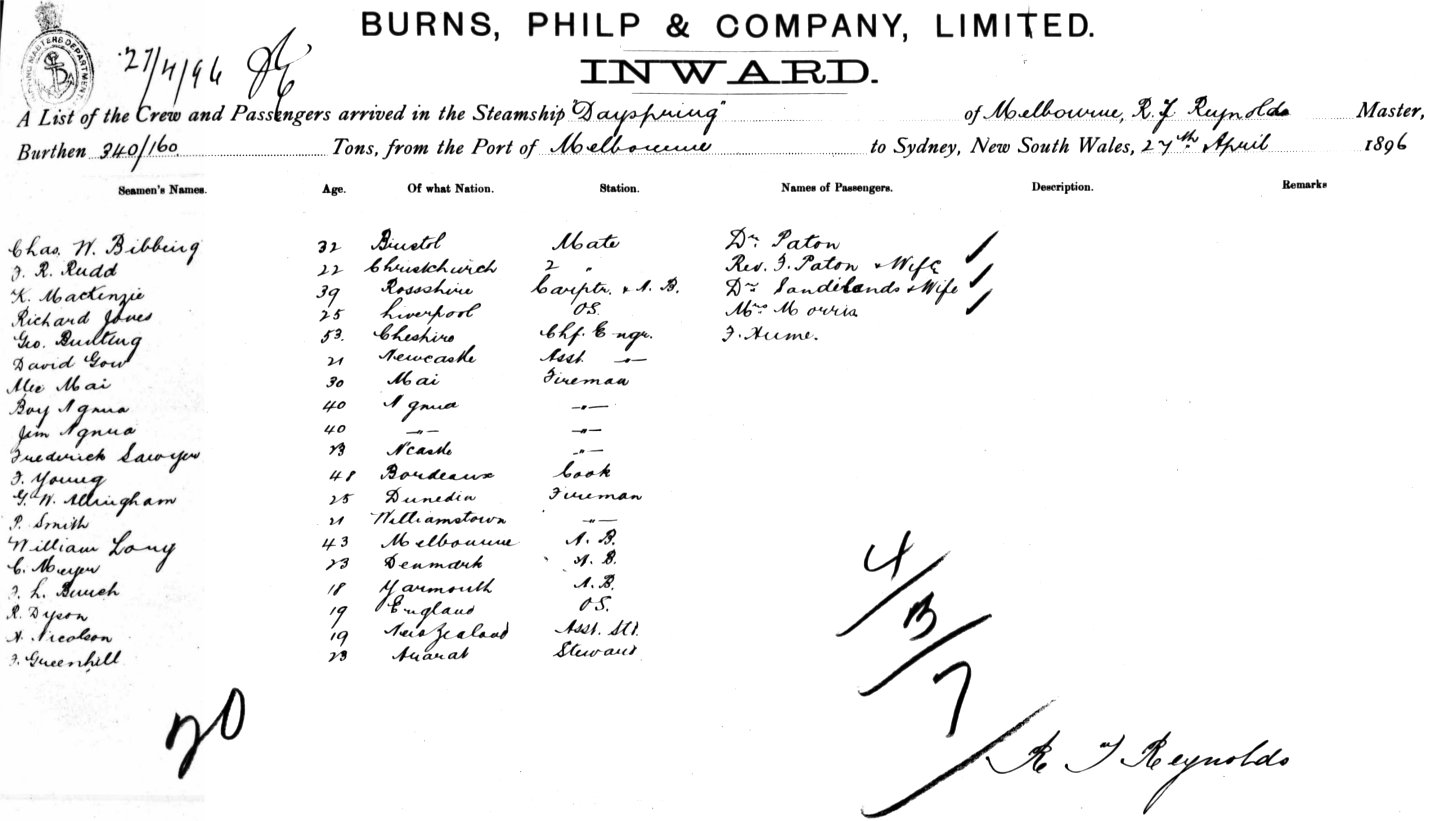 BURNS, PHILP & COMPANY, LIMITED.
INWARD.
27/4/96
A List of the Crew and Passengers arrived in the Steamship "Dayspring" of Melbourne, R. F Reynolds Master,
Burthen 340/160 Tons, from the Port of Melbourne to Sydney, New South Wales, 27th April 1896
Seamen's Names. Age. Of what Nation. Station. Names of Passengers. Description. Remarks
Chas. W. Bibbing 32 Bristol Mate Dr. Paton
F. R. Rudd 22 Christchurch 2 " Rev. F. Paton & Wife
K. Mackenzie 39 Rossshire Carptr. & A. B. Dr Sandilands & Wife
Richard Jones 25 Liverpool OS. Mrs Morris
Geo. Bunting 53. Cheshire Chf. Engr. F. Hume.
David Gow 21 Newcastle Asst. —"—
Alec Mai 30 Mai Fireman
Boy Ngnua 40 Ngnua —"—
Jim Ngnua 40 —"— —"—
Frederick Sawyer 23 N'castle —"—
F. Young 48 Bordeaux Cook
G. W. Allingham 25 Dunedin Fireman
P. Smith 21 Williamstown —"—
William Long 43 Melbourne A. B.
C. Meyer 23 Denmark A. B.
F. L. 18 Yarmouth A. B.
R. Dyson 19 England OS.
A. Nicolson 19 New Zealand Asst. Std.
F. Greenhill 23 Ararat Steward
20
4/3/7/
R F Reynolds